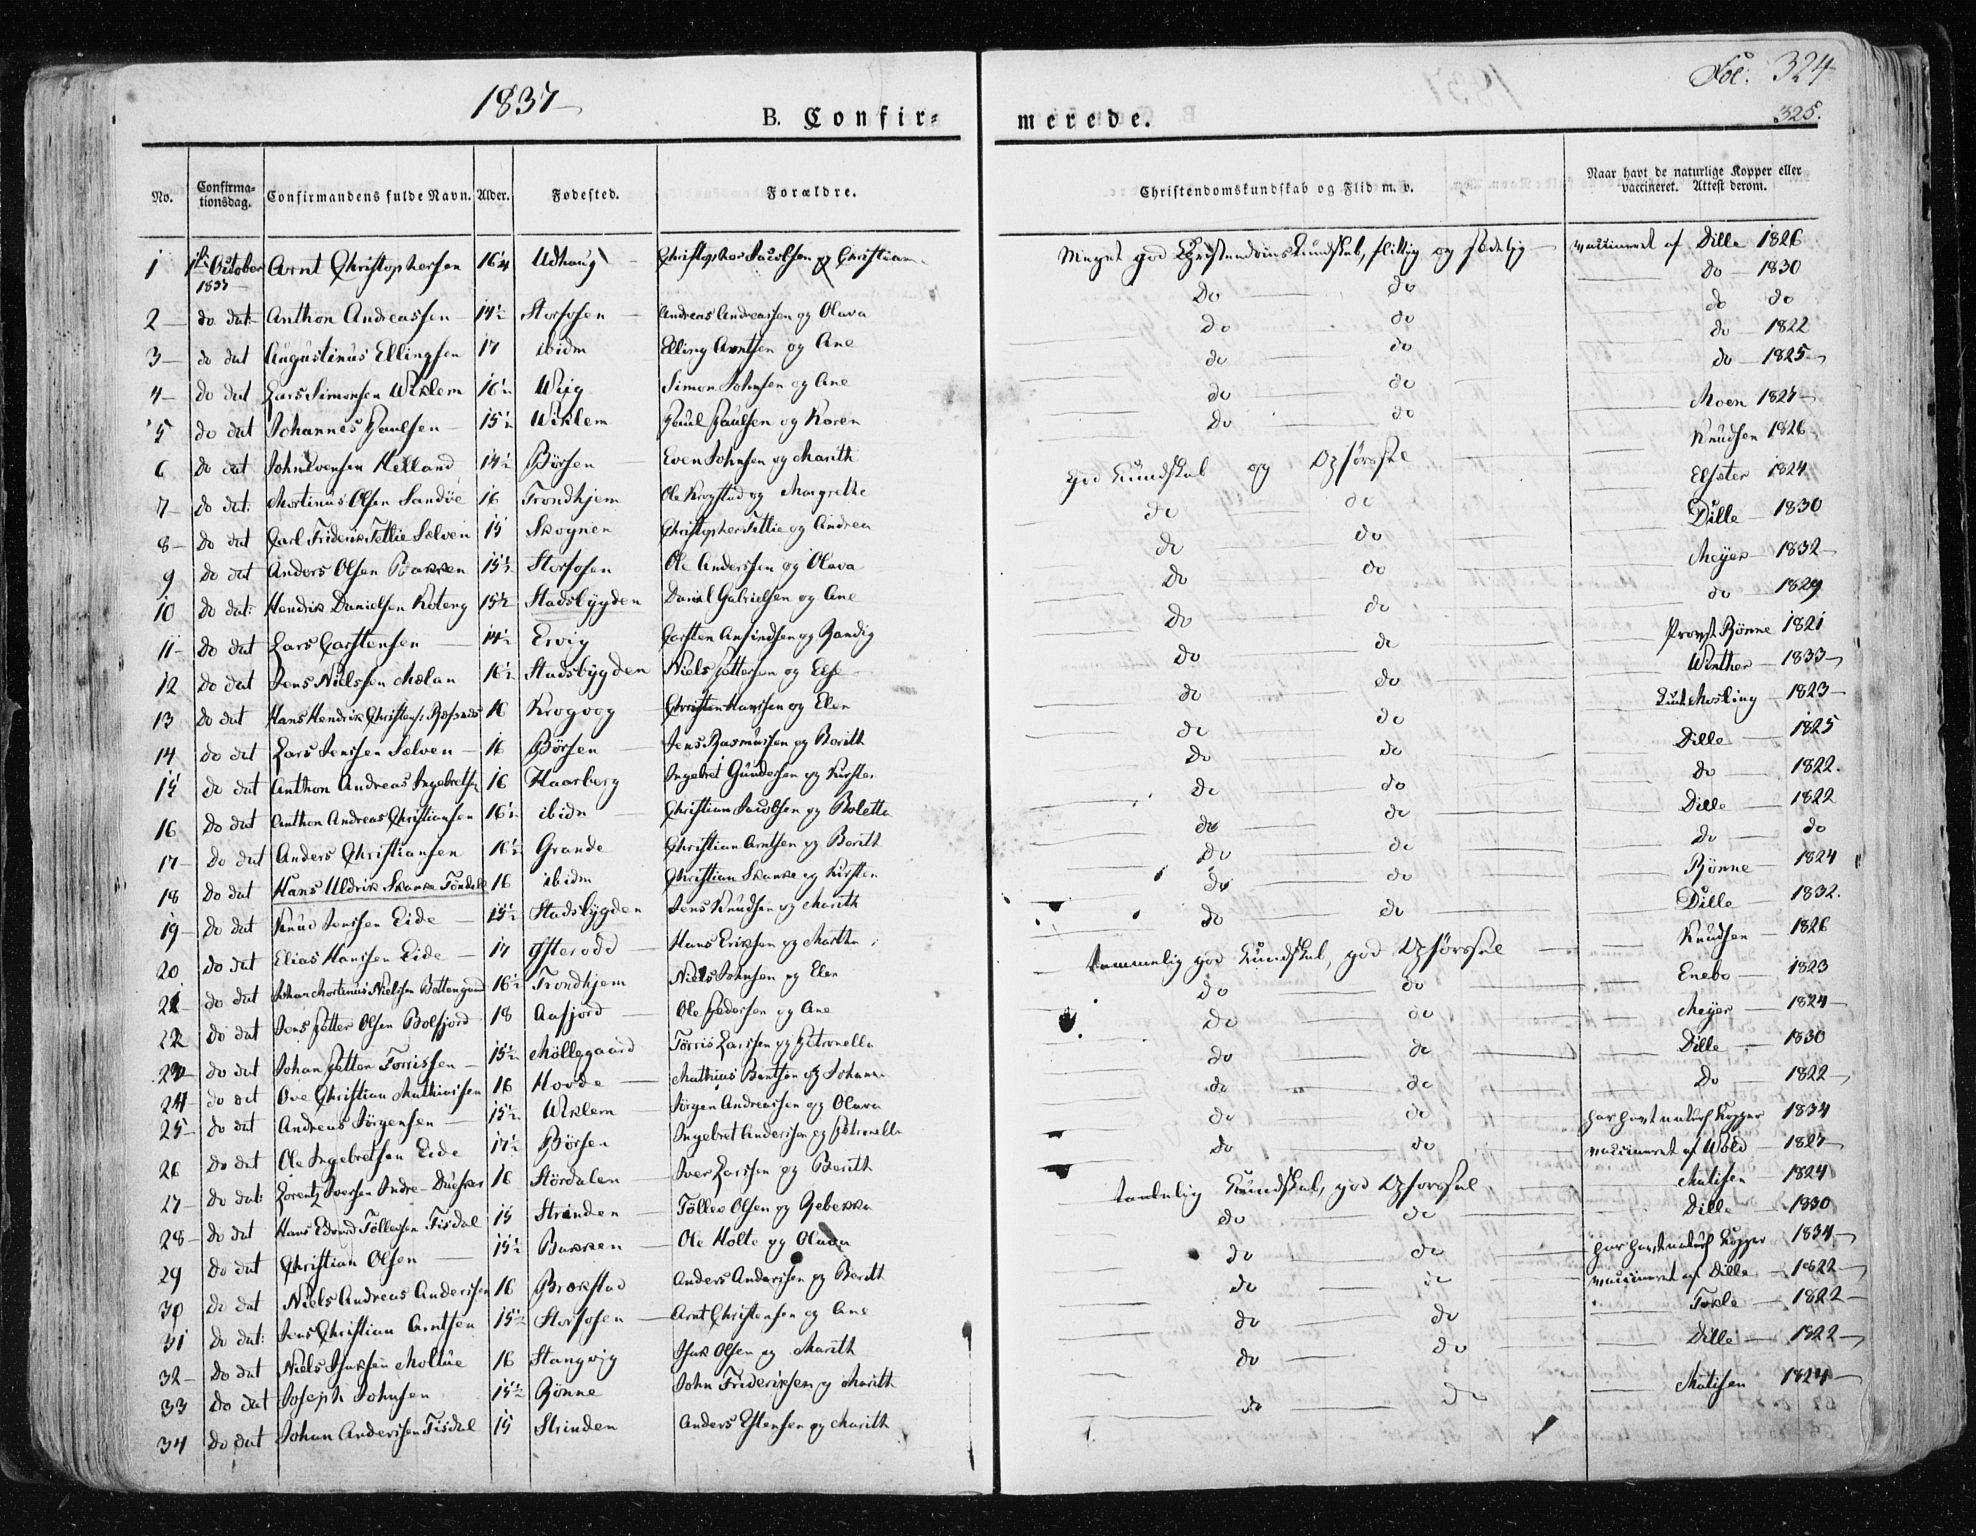 1837
Fol. 324
325.
B. Confir-
merede.
No. Confirma-tionsdag. Confirmandens fulde Navn. Alder. Fødested. Forældre. Christendomskundskab og Flid m. v. Naar havt de naturlige Kopper eller vaccineret. Attest derom.
1 October 1837 Arnt Christophersen 16 Udhaug Christopher Jacobsen og Christian Meget god Christendomskundskab, flittig og sædelig vaccineret af Dille 1826
2 do dat Anthon Andreassen 14½ Storfosen Andreas Andreassen og Olava Do do do 1830
3 do dat Augustinus Ellingsen 17 ibidm Elling Arntsen og Ane Do do do do
4 do dat Lars Simonsen Wiklem 16½ Wiig Simon Johnsen og Ane do do do 1822
5 do dat Johannes Paulsen 15½ Wiklem Paul Paulsen og Karen do do do 1825
6 do dat John Evensen Helland 14½ Börsen Even Johnsen og Marith Do do Moen 1827
7 do dat Martinus Olsen Sandöe 16 Trondhjem Ole Krogstad og Margrethe God Kundskab og Opförsel Knudsen 1826
8 do dat Carl Friderik Tettie Sælven 15 Skognen Christopher Tettie og Andrea do do Elster 1824
9 do dat Anders Olsen Bakken 15½ Storfosen Ole Anderssen og Olava do do Dille 1830
10 do dat Hendrik Danielsen Koteng 15½ Stadsbygden Daniel Gabrielsen og Ane do do Meyer 1832
11 do dat Lars Carstensen 14½ Ervig Carsten Anfindsen og Randig do do do 1829
12 do dat Jens Nielssen Mælan 16½ Stadsbygden Niels Pettersen og Else do do Provst Rönne 1821
13 do dat Hans Hendrik Christens: 16 Krogvog Christen Hanssen og Elen do do Winther 1833
14 do dat Lars Jenssen Sælven 16 Börsen Jens Rasmussen og Berith do do 1823
15 do dat Anthon Andreas Ingebretsen 16 Haarberg Ingebret Gundersen og Kirsten do do Dille 1825
16 do dat Anthon Andreas Christiansen 16½ ibidm Christian Jacobsen og Boletta do do do 1822.
17 do dat Anders Christiansen 16½ Grande Christian Arntsen og Berith do do Dille 1822
18 do dat Hans Uldrik Skanke Töndell 16 ibidm Christian Skanke og Kirsten do do do do
19 do dat Knud Jenssen Eide 15½ Stadsbygden Jens Knudsen og Marith do do Rönne 1824
20 do dat Elias Hanssen Eide 17 Østeraad Hans Eriksen og Martha do do Dille 1832.
21 do dat Johan Martinus Nielssen Bottengaard 16½ Trondhjem Niels Johnsen og Elen Temmelig god Kundskab, god Opförsel Knudsen 1826
22 do dat Jens Petter Olsen Bolfjord 18 Aafjord Ole Pedersen og Ane do do Enebo 1823
23 do dat Johan Petter Torrissen 15½ Möllegaard Törris Larssen og Petronella do do Meyer 1824
24 do dat Ove Christian Mathiassen 16 Hovde Mathias Bentsen og Johanna do do Dille 1830
25 do dat Andreas Jörgensen 15½ Wiklem Jörgen Andreassen og Olava do do Do 1822
26 do dat Ole Ingebretsen Eide 17½ Börsen Ingebret Anderssen og Petronella do do har havt naturl Kopper 1834
27 do dat Lorentz Iversen Indre- 16 Stördalen Iver Larssen og Berith do do vaccineret af Wold 1827
28 do dat Hans Edvard Töllefsen Fisdal 15 Strinden Töllev Olsen og Rebekka Taalelig Kundskab, god Opförsel Mathisen 1824
29 do dat Christian Olsen 15½ Bakken Ole Holte og Olava do do Dille 1830
30 do dat Niels Andreas Anderssen 16 Brækstad Anders Anderssen og Berith do do har havt naturl Kopper 1834
31 do dat Jens Christian Arntsen 15½ Storfosen Arnt Christensen og Ane do do vaccineret af Dille 1822
32 do dat Niels Isaksen Moltue 16 Stangvig Isak Olsen og Marith do do 1822
33 do dat Joseph Johnsen 15½ Rönne John Frideriksen og Marith do do Dille 1822
34 do dat Johan Anderssen Fisdal 15 Strinden Anders Estensen og Marith do do Mathisen 1824